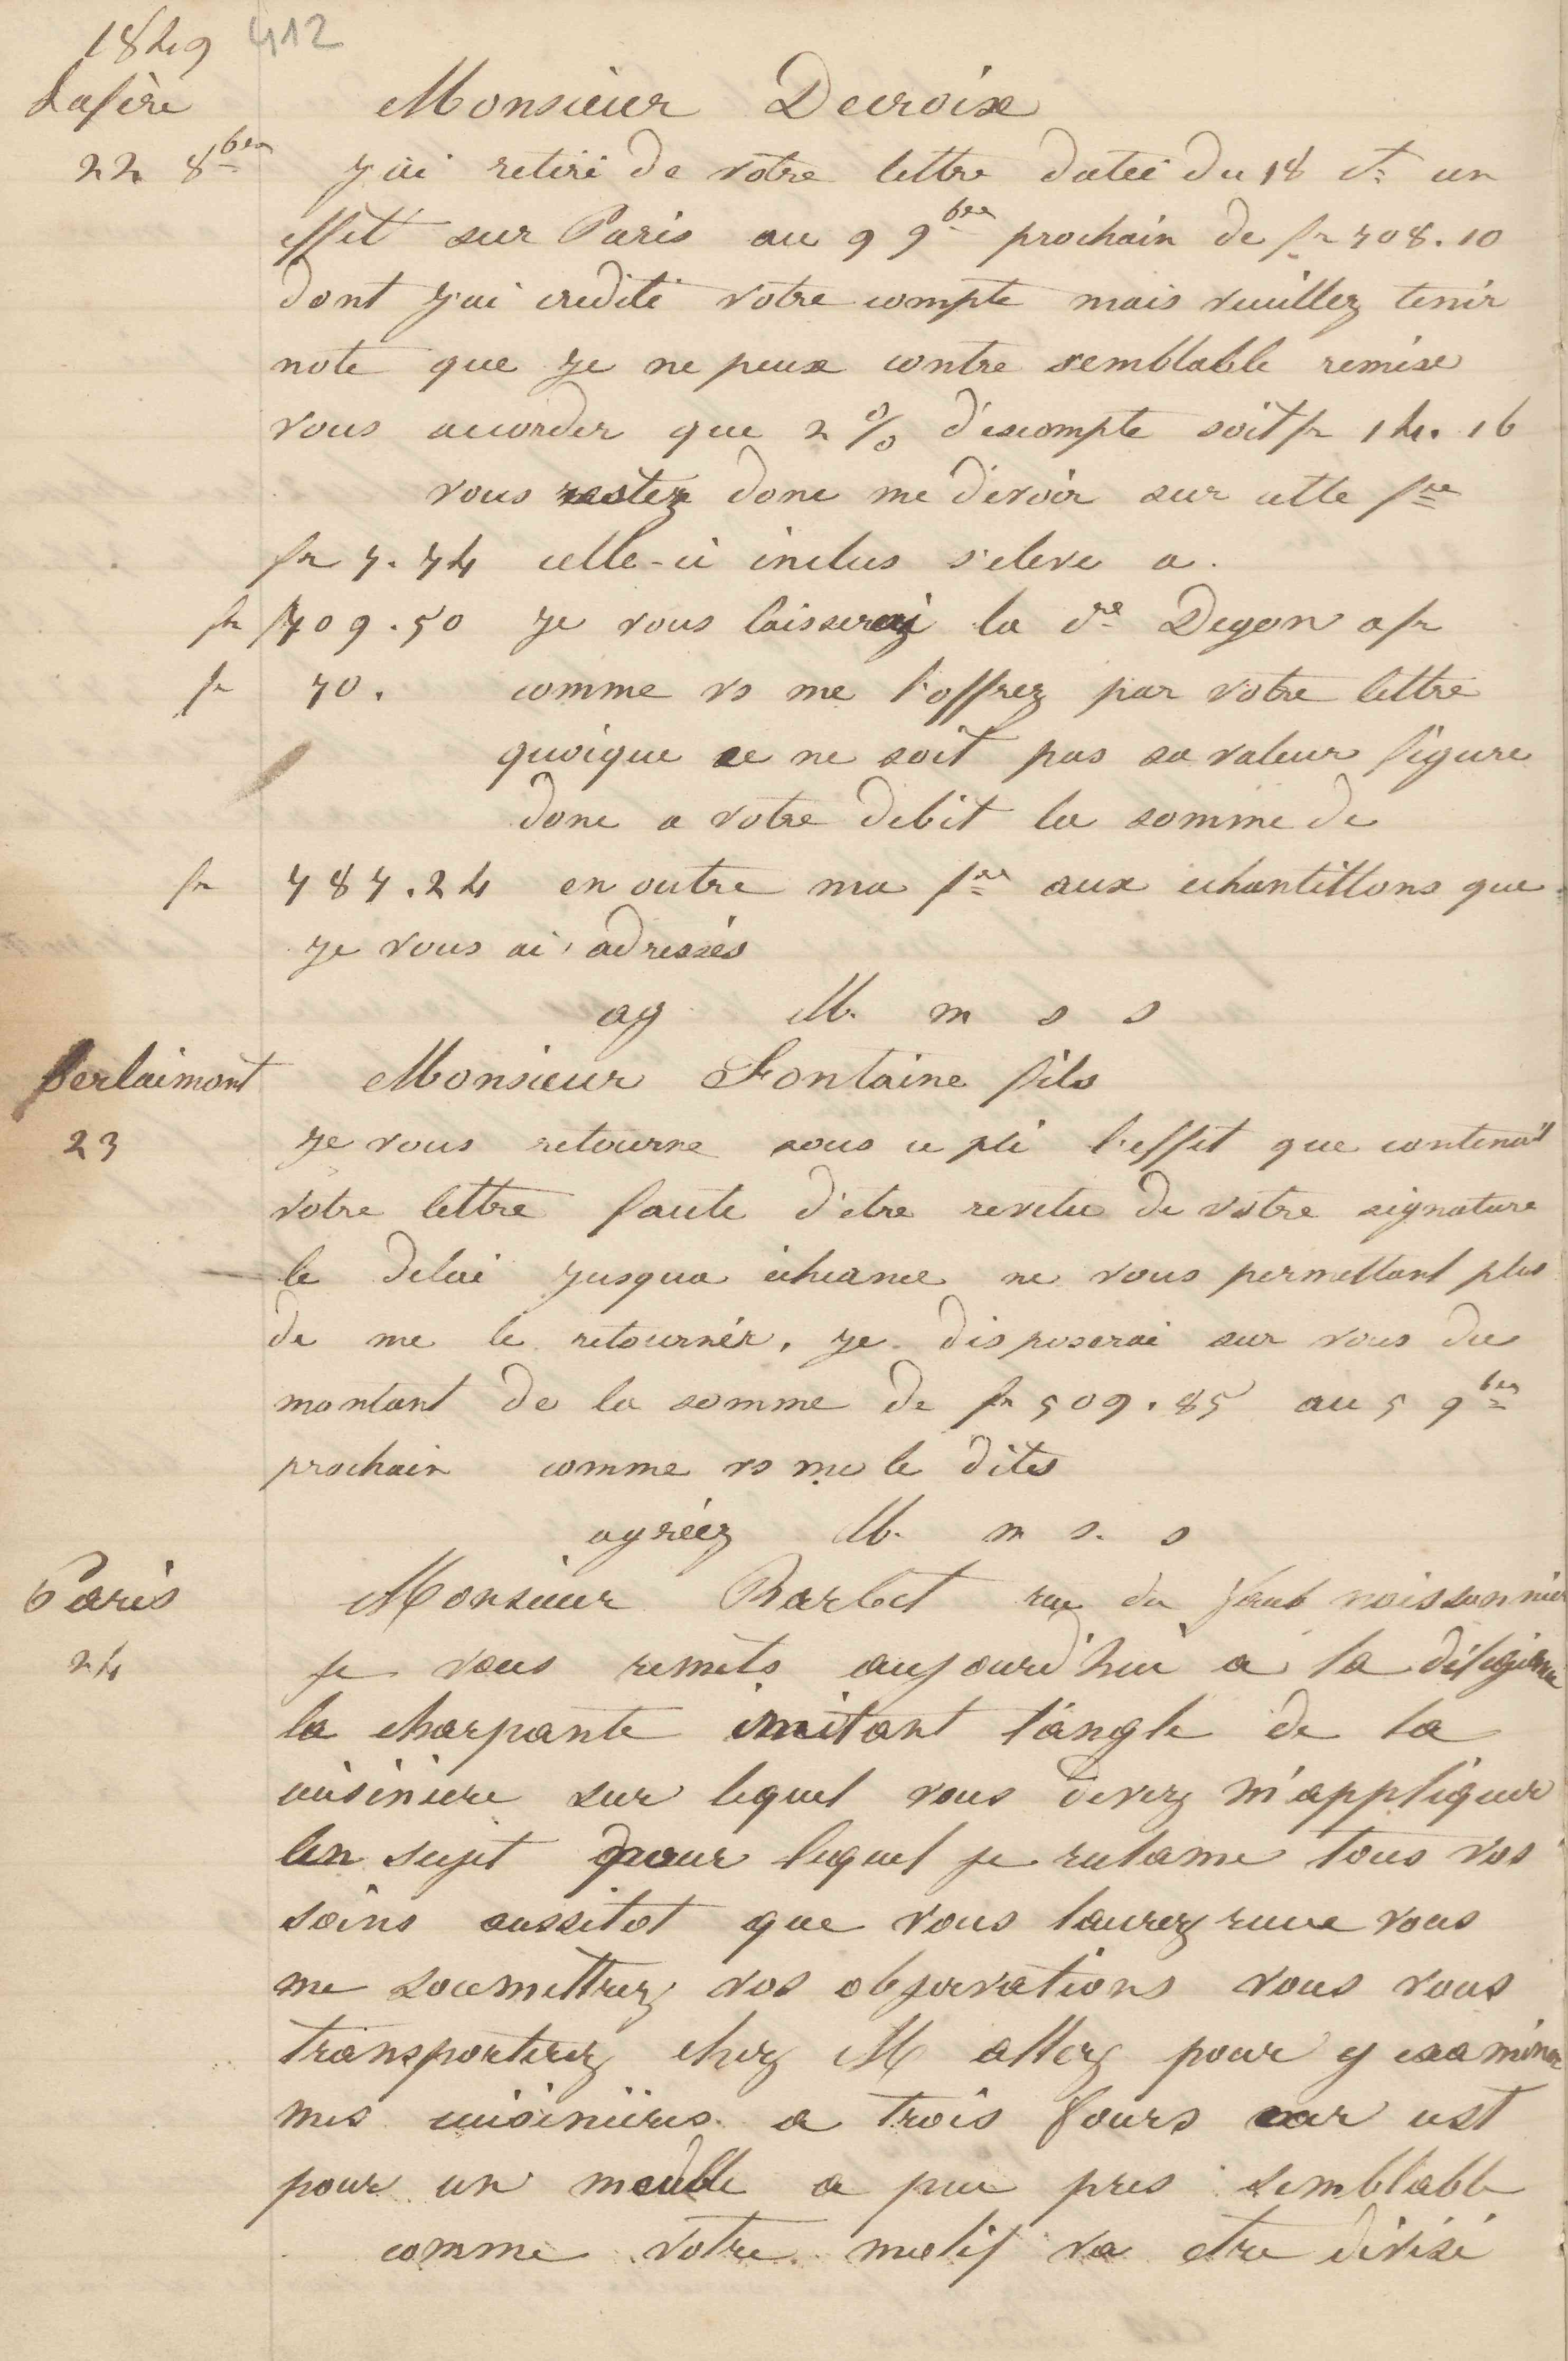 1849 412
Lafère Monsieur Decroix
22 8bre J'ai retiré de votre lettre datée du 18 ct un
effet sur Paris au 9 9bre prochain de fr 708.10
dont j'ai credité votre compte mais veuillez tenir
note que je ne peux contre semblable remise
vous accorder que 2 % d'escompte soit fr 14.16
vous restez donc me devoir sur cette fre
fr 7.74 celle-ci inclus s'eleve a.
fr 709.50 je vous laisserai la dre Degon a fr
fr 70. comme vs me l'offrez par votre lettre
quoique ce ne soit pas sa valeur figure
donc a votre debit la somme de
fr 787.24 en outre ma fre aux echantillons que
je vous ai adressés
ag M. m s s
Berlaimont Monsieur Fontaine fils
23 je vous retourne sous ce pli l'effet que contenait
votre lettre faute d'etre revetu de votre signature
le delai jusqua écheance ne vous permettant plus
de me le retournér, je disposerai sur vous du
montant de la somme de fr 509.85 au 5 9bre
prochain comme vs me le dites
agréez M. m s. s
Paris Monsieur Barbet rue du faub poissonnier
24 je vous remets aujourd'hui a la diligence
la charpante imitant l'angle de la
cuisiniere sur lequel vous devez m'appliquer
un sujet pour lequel je reclame tous vos
soins aussitot que vous laurez recue vous
me soumettrez vos observations vous vous
transporterez chez M allez pour y examiner
mes cuisinières a trois fours car cest
pour un meuble a peu pres semblable
comme votre motif va etre divisé